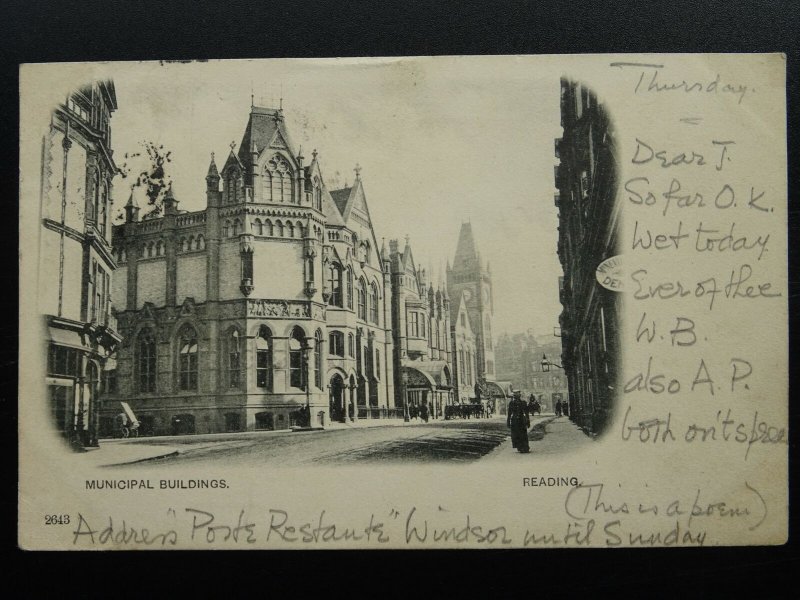 Thursday.
Dear J.
So far O.K.
Wet today
Ever of thee
W.B.
also A.P.
both on't spree
(This is a poem)
MUNICIPAL BUILDINGS.
READING.
2643
Address "Poste Restante" Windsor until Sunday.